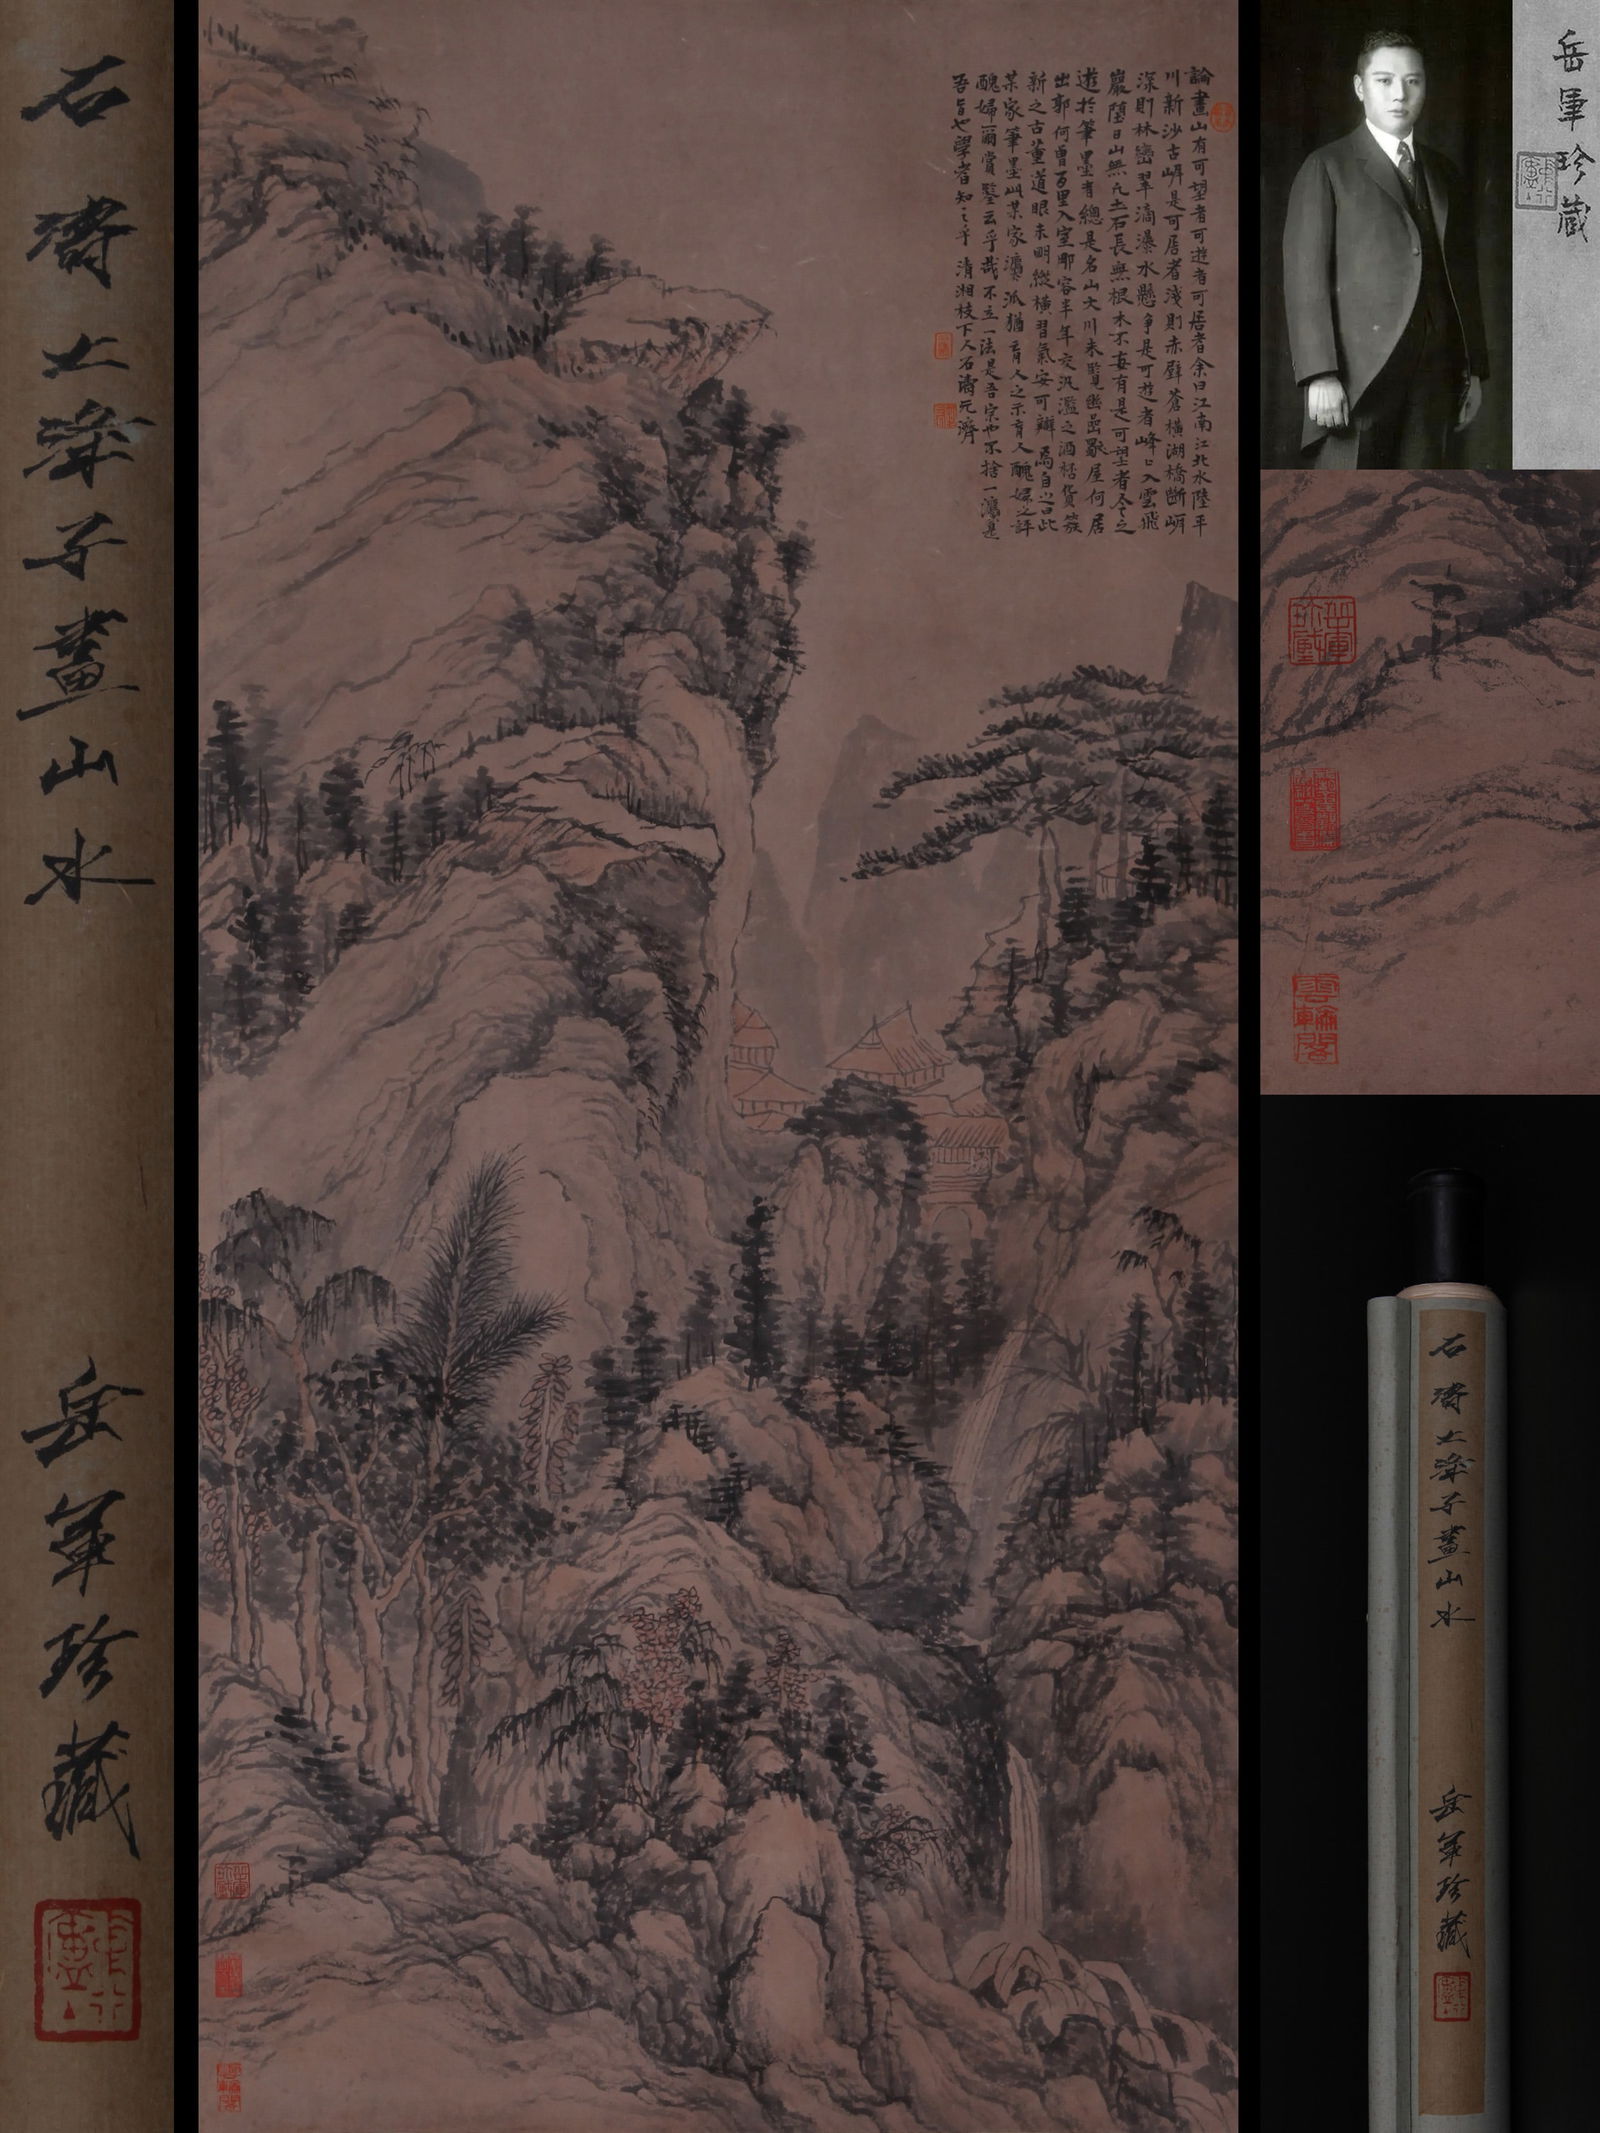 石濤大滌子畫山水
岳軍珍藏
論畫山有可望者可遊者可居者余曰江南江北水陸平
川新沙古岸是可居者淺則赤壁蒼橫湖橋斷岸
深則林巒翠滴瀑水懸爭是可遊者峰峰入雲飛
巖墮日山無凡土石長無根木不妄有是可望者今之
遊於筆墨者總是名山大川未覽幽岩獨屋何居
出郭何曾百里入室那容半年交汎濫之酒杯貨簇
新之古董道眼未明縱橫習氣安可辯焉自之曰此
某家筆墨此某家瀍派猶盲人之示盲人醜婦之評
醜婦爾賞鑒云乎哉不立一法是吾宗也不捨一瀍是
吾旨也學者知之乎 清湘枝下人石濤元濟
岳軍珍藏
岳軍珍藏
雲輪閣
石濤大滌子畫山水
岳軍珍藏